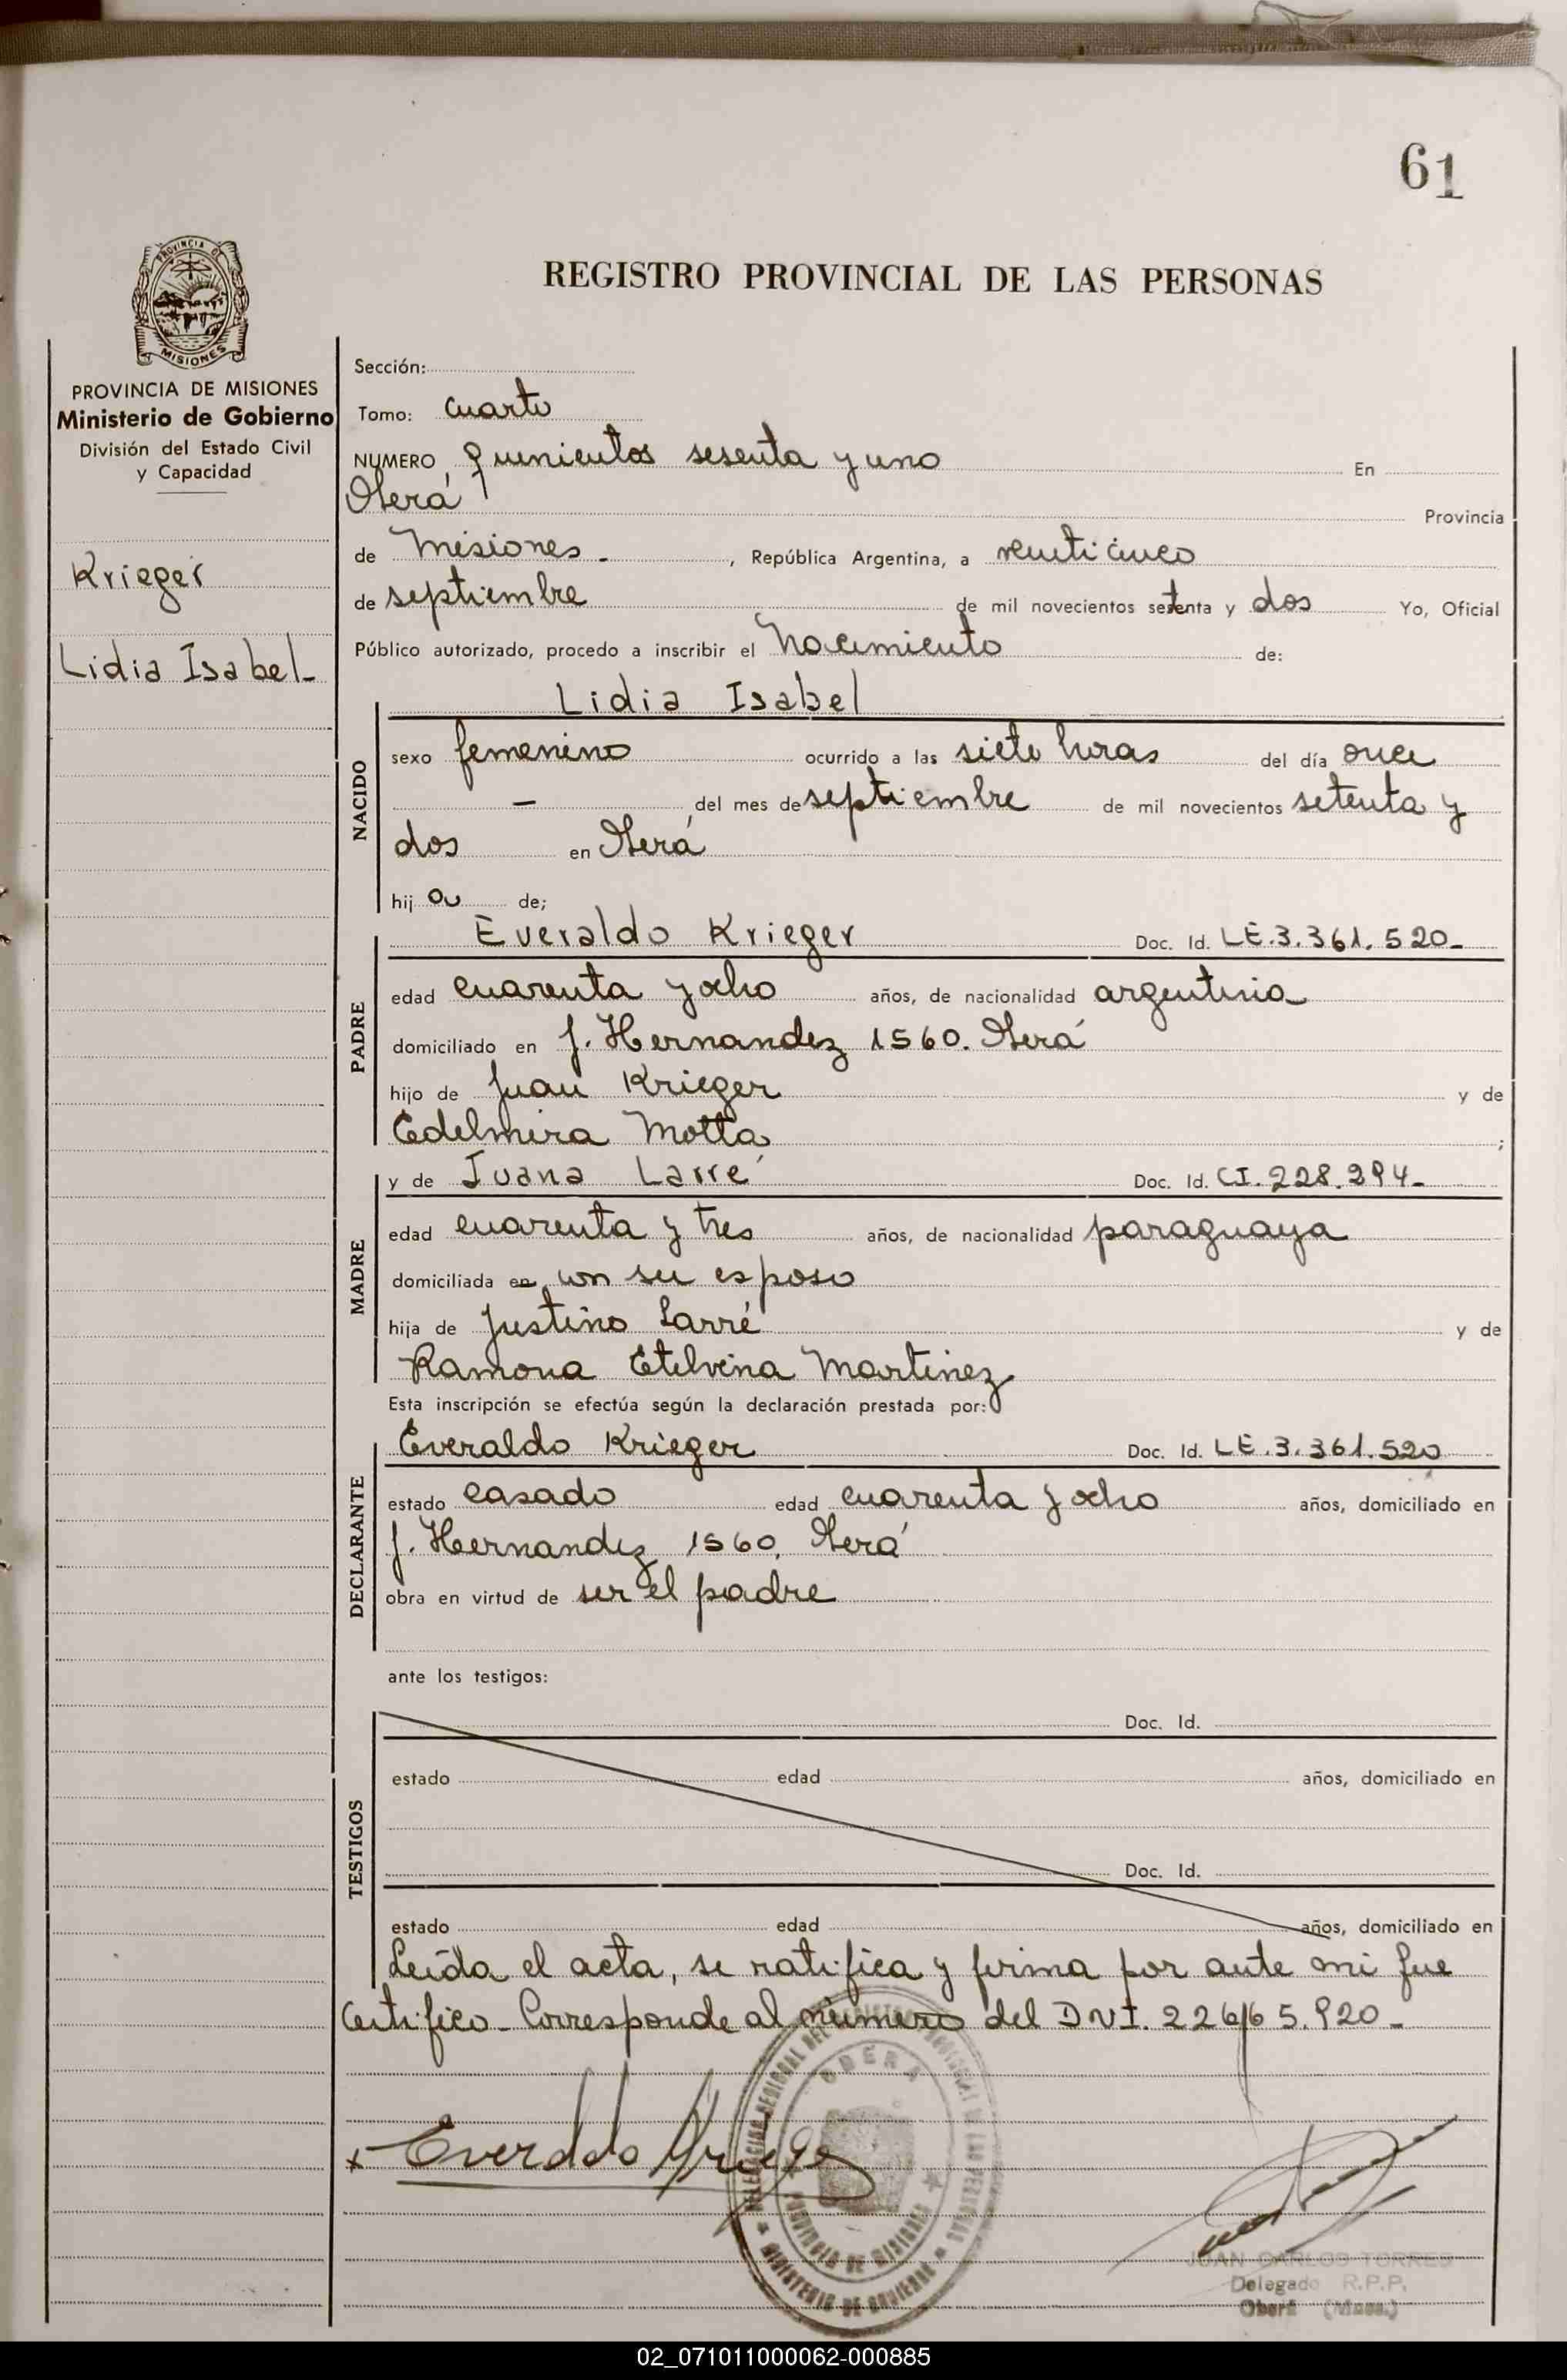 61
PROVINCIA DE
MISIONES
REGISTRO PROVINCIAL DE LAS PERSONAS
PROVINCIA DE MISIONES
Ministerio de Gobierno
División del Estado Civil
y Capacidad
Krieger
Lidia Isabel-
Sección:
Tomo: cuarto
NUMERO quinientos sesenta y uno En
Oberá Provincia
de Misiones - , República Argentina, a veinticinco
de septiembre de mil novecientos setenta y dos Yo, Oficial
Público autorizado, procedo a inscribir el Nacimiento de:
Lidia Isabel
NACIDO
sexo femenino ocurrido a las siete horas del día once
- del mes de septiembre de mil novecientos setenta y
dos en Oberá
hij a de;
Everaldo Krieger Doc. Id. LE.3.361.520-
PADRE
edad cuarenta y ocho años, de nacionalidad argentina
domiciliado en J. Hernandez 1560. Oberá
hijo de Juan Krieger y de
Edelmira Motta ;
y de Juana Larré Doc. Id. CI.228.294-
MADRE
edad cuarenta y tres años, de nacionalidad paraguaya
domiciliada en con su esposo
hija de Justino Larré y de
Ramona Etelvina Martinez
Esta inscripción se efectúa según la declaración prestada por:
Everaldo Krieger Doc. Id. LE.3.361.520
DECLARANTE
estado casado edad cuarenta y ocho años, domiciliado en
J. Hernandez 1560. Oberá
obra en virtud de ser el padre
ante los testigos:
TESTIGOS
Doc. Id.
estado edad años, domiciliado en
Doc. Id.
estado edad años, domiciliado en
Leída el acta, se ratifica y firma por ante mi que
Certifico - Corresponde al número del DNI.
Everaldo Krieger
OBERA
PROVINCIA DE MISIONES
MINISTERIO DE GOBIERNO
JUAN CARLOS TORRES
Delegado R.P.P.
Oberá (Mnes.)
02_071011000062-000885